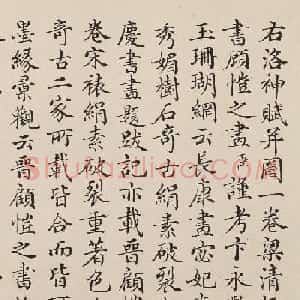 右洛神賦并圖一卷梁清
書顧愷之畫者謹考卞永
玉珊瑚網云長康畫宓妃
秀媚樹石奇古絹素破裂
慶書畫題跋記亦載晉顧
卷宋裱絹素破裂重著色
奇古二家所載皆合而皆
墨緣彙觀云晉顧愷之書